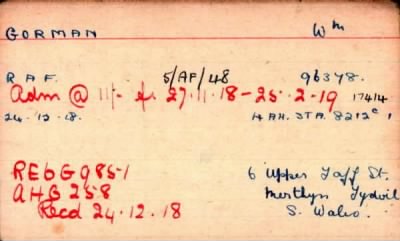 GORMAN Wm
R A F. 5/AF/48 96378.
Adm @ 11/- fr. 27.11.18-25.2.19 17414
24.12.18. H AH. STA. 8212c 1
RE6G 985-1 6 Upper Taff St.
AHB 258 Merthyr Tydvil
Recd 24.12.18 S. Wales.